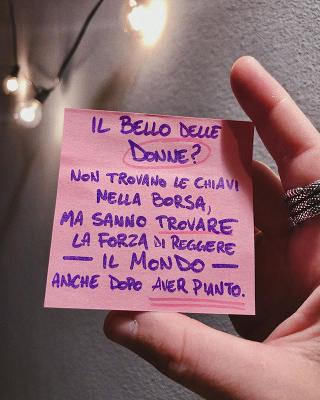 IL BELLO DELLE
DONNE?
NON TROVANO LE CHIAVI
NELLA BORSA,
MA SANNO TROVARE
LA FORZA DI REGGERE
— IL MONDO —
ANCHE DOPO AVER PIANTO.